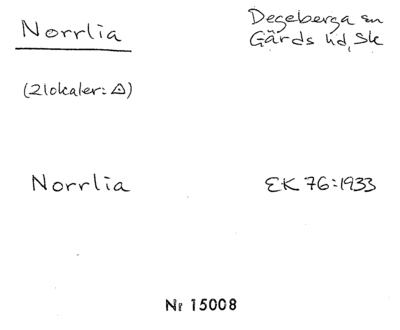 Norrlia
Degeberga sn
Gärds hd, Sk
(2 lokaler: △)
Norrlia
EK 76:1933
Nr 15008